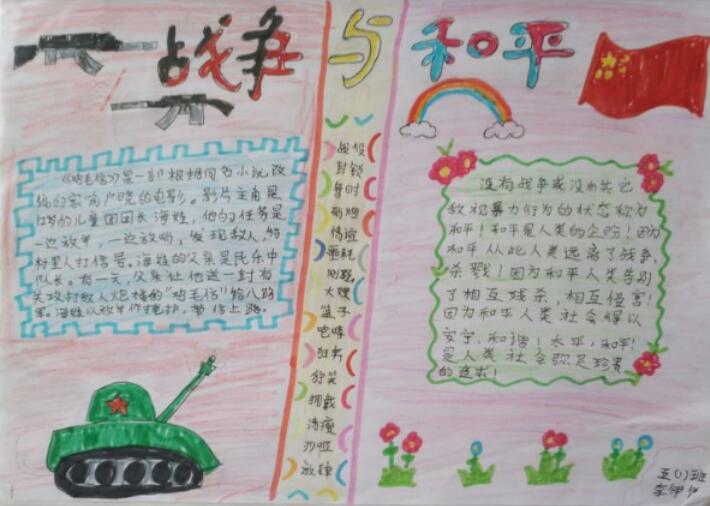 战争与和平
《鸡毛信》是一部根据同名小说改
编的家喻户晓的电影。影片主角是
12岁的儿童团团长海娃，他的任务是
一边放羊，一边放哨，发现敌人，给
村里人打信号。海娃的父亲是民乐中
队长。有一天，父亲让他送一封有
关攻打敌人炮楼的“鸡毛信”给八路
军。海娃以放羊作掩护，带信上路。
战役
封锁
暂时
硝烟
情谊
噩耗
刚毅
大嫂
篮子
咆哮
狂奔
狞笑
拥戴
沙哑
没有战争或没有其它
敌视暴力行为的状态称为
和平！和平是人类的企盼！因为
和平从此人类远离了战争、
杀戮！因为和平人类告别
了相互残杀，相互侵害！
因为和平人类社会得以
安宁、和谐！太平，和平！
是人类社会弥足珍贵
的追求！
五(1)班